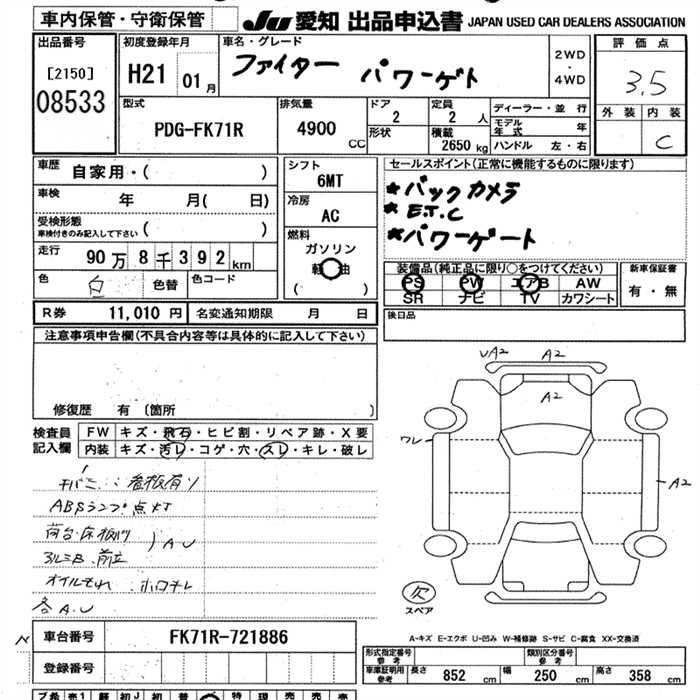 車内保管・守衛保管 JU 愛知 出品申込書 JAPAN USED CAR DEALERS ASSOCIATION
出品番号
[2150]
08533
初度登録年月
H21 01月
車名・グレード
ファイター パワーゲト
2WD
・
4WD
評価点
3.5
外装 内装
C
型式
PDG-FK71R
排気量
4900 CC
ドア
2
形状
定員
2人
積載
2650 kg
ディーラー・並行
モデル年式 年
ハンドル 左・右
車歴 自家用・( )
車検 年 月( 日)
受検形態
車検付きのみ記入して下さい ( )
走行 90万8千392km
色 白 色替 色コード
シフト
6MT
冷房
AC
燃料
ガソリン
軽油
( )
セールスポイント(正常に機能するものに限ります)
★バックカメラ
★E.T.C
★パワーゲート
装備品(純正品に限り○をつけてください)
PS PW エアB AW
SR ナビ TV カワシート
新車保証書
有・無
R券 11,010円 名変通知期限 月 日
後日品
注意事項申告欄(不具合内容等は具体的に記入して下さい)
修復歴 有 〔箇所 〕
検査員記入欄
FW キズ・飛石・ヒビ割・リペア跡・X要
内装 キズ・汚レ・コゲ・穴・スレ・キレ・破レ
看板有り
ABSランプ点灯
荷台床板
アルミB.前立 A U
オイルもれ ホロキレ
各A.U
UA2 A2
A2
ワレ
A2
欠
スペア
A-キズ E-エクボ U-凹み W-補修跡 S-サビ C-腐食 XX-交換済
車台番号 FK71R-721886
登録番号
形式指定番号
参考
類別区分番号
参考
車庫証明用
参考
長さ 852 cm 幅 250 cm 高さ 358 cm